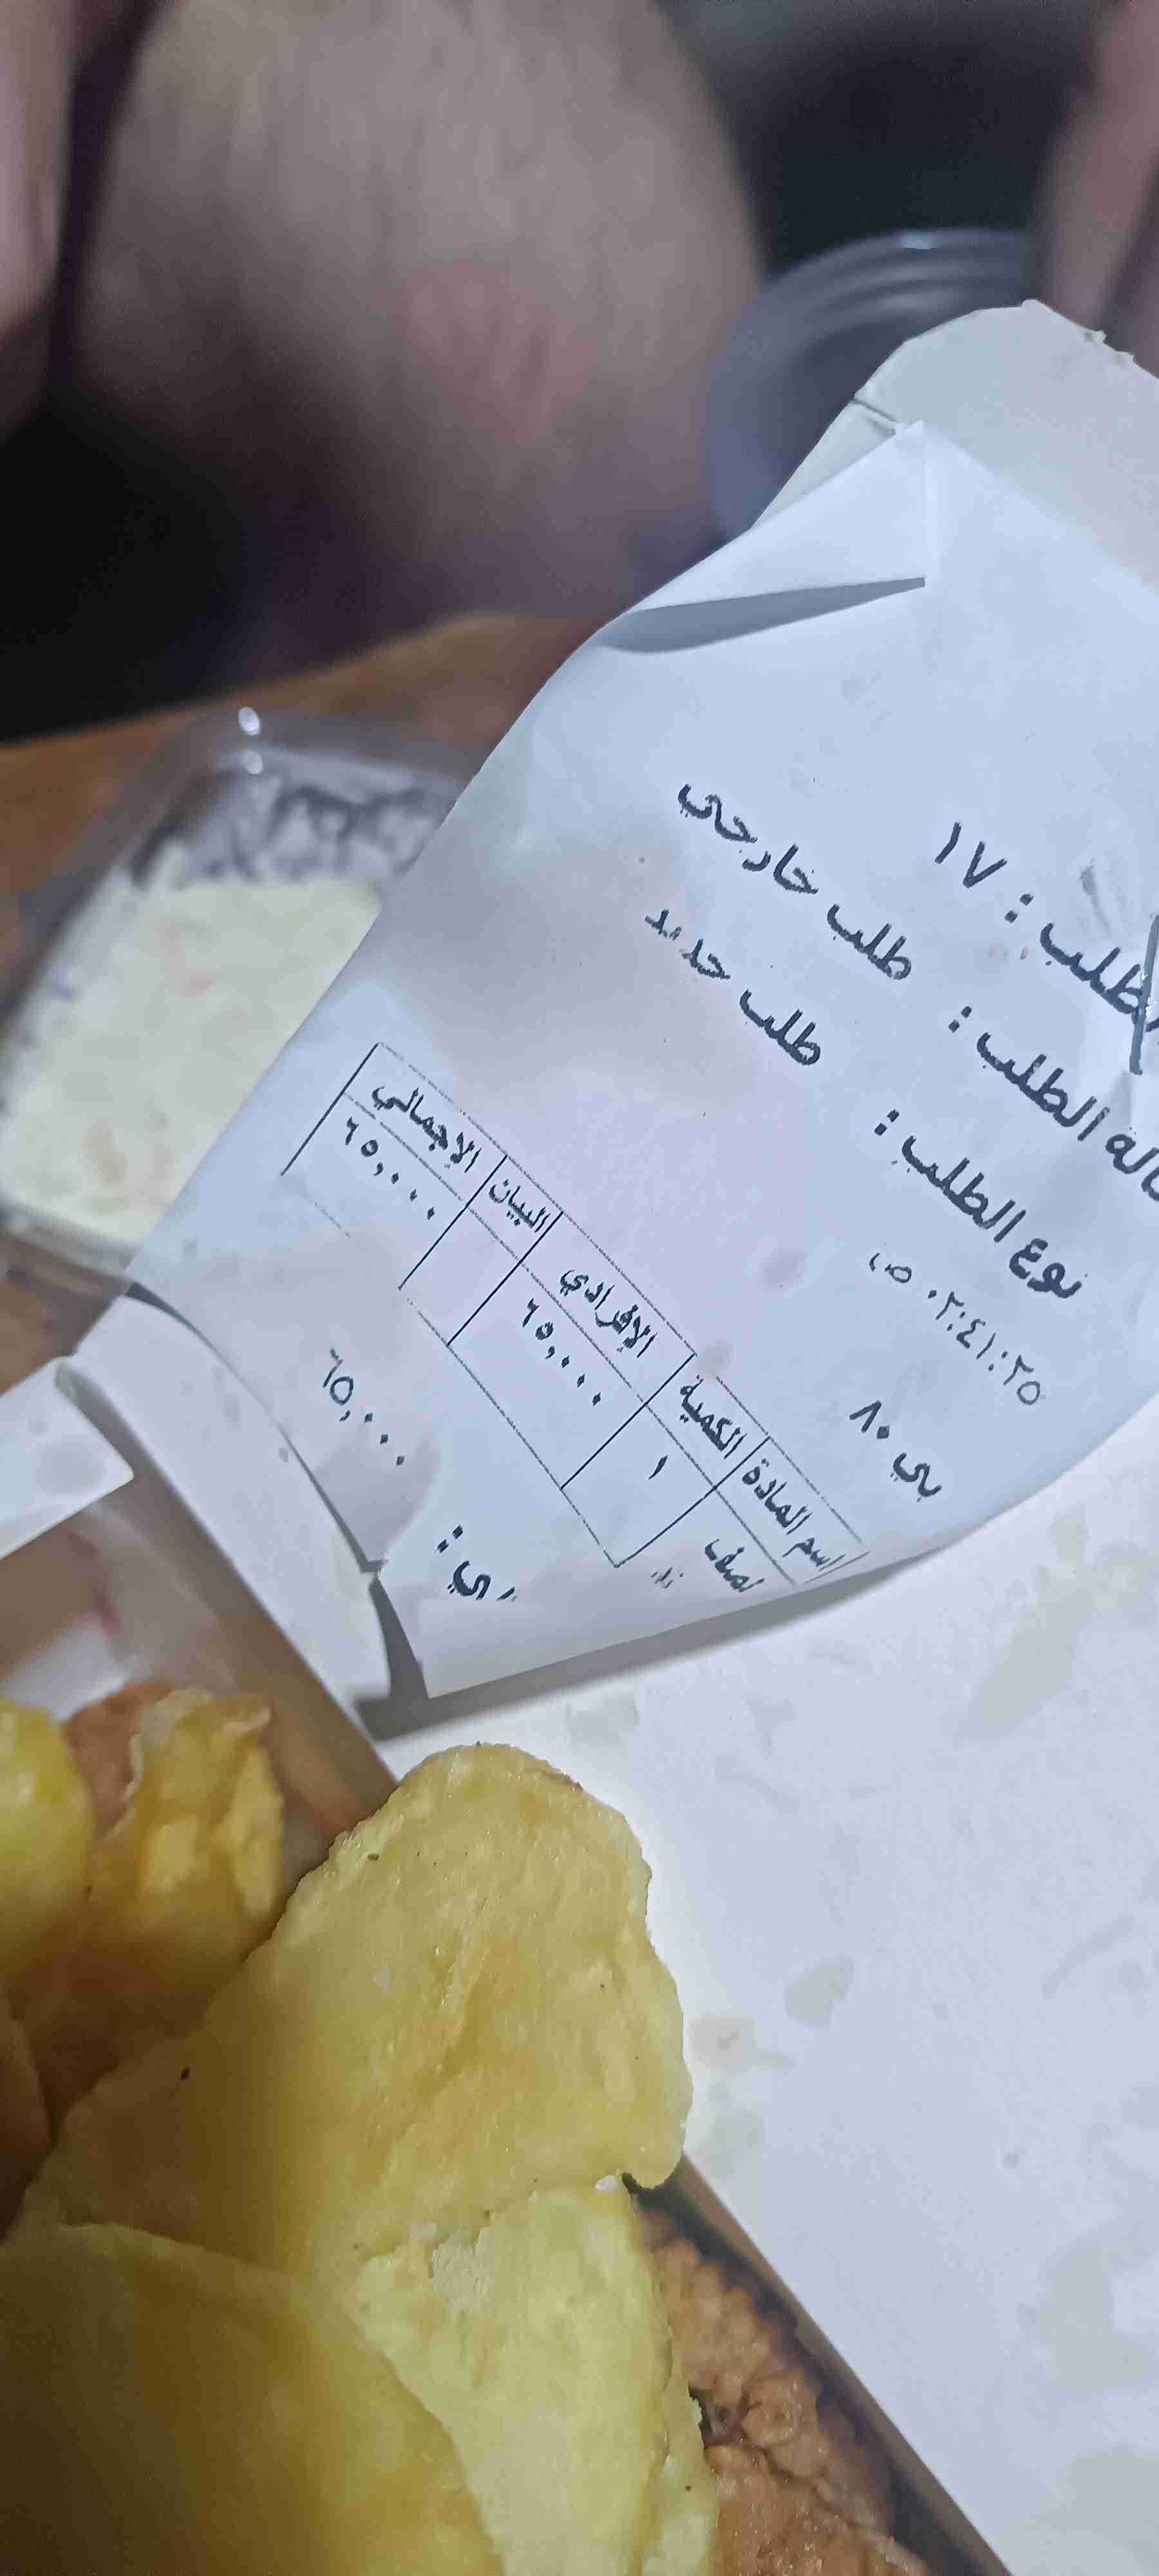 الطلب : ١٧
حالة الطلب : طلب خارجي
نوع الطلب : طلب جديد
٠٢:٤١:٢٥ ص
بي ٨٠
اسم المادة الكمية الإفرادي البيان الإجمالي
نصف ١ ٦٥,٠٠٠ ٦٥,٠٠٠
٦٥,٠٠٠